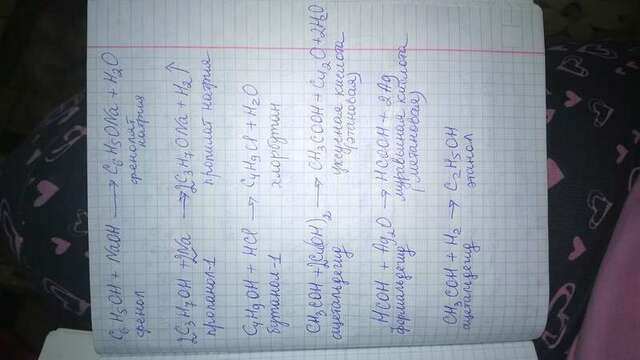 C6H5OH + NaOH ⟶ C6H5ONa + H2O
фенол фенолят
натрия
2C3H7OH + 2Na ⟶ 2C3H7ONa + H2↑
пропанол-1 пропилат натрия
C4H9OH + HCl ⟶ C4H9Cl + H2O
бутанол-1 хлорбутан
CH3COH + 2Cu(OH)2 ⟶ CH3COOH + Cu2O + 2H2O
ацетальдегид уксусная кислота
(этановая)
HCOH + Ag2O ⟶ HCOOH + 2Ag
формальдегид муравьиная кислота
(метановая)
CH3COH + H2 ⟶ C2H5OH
ацетальдегид этанол